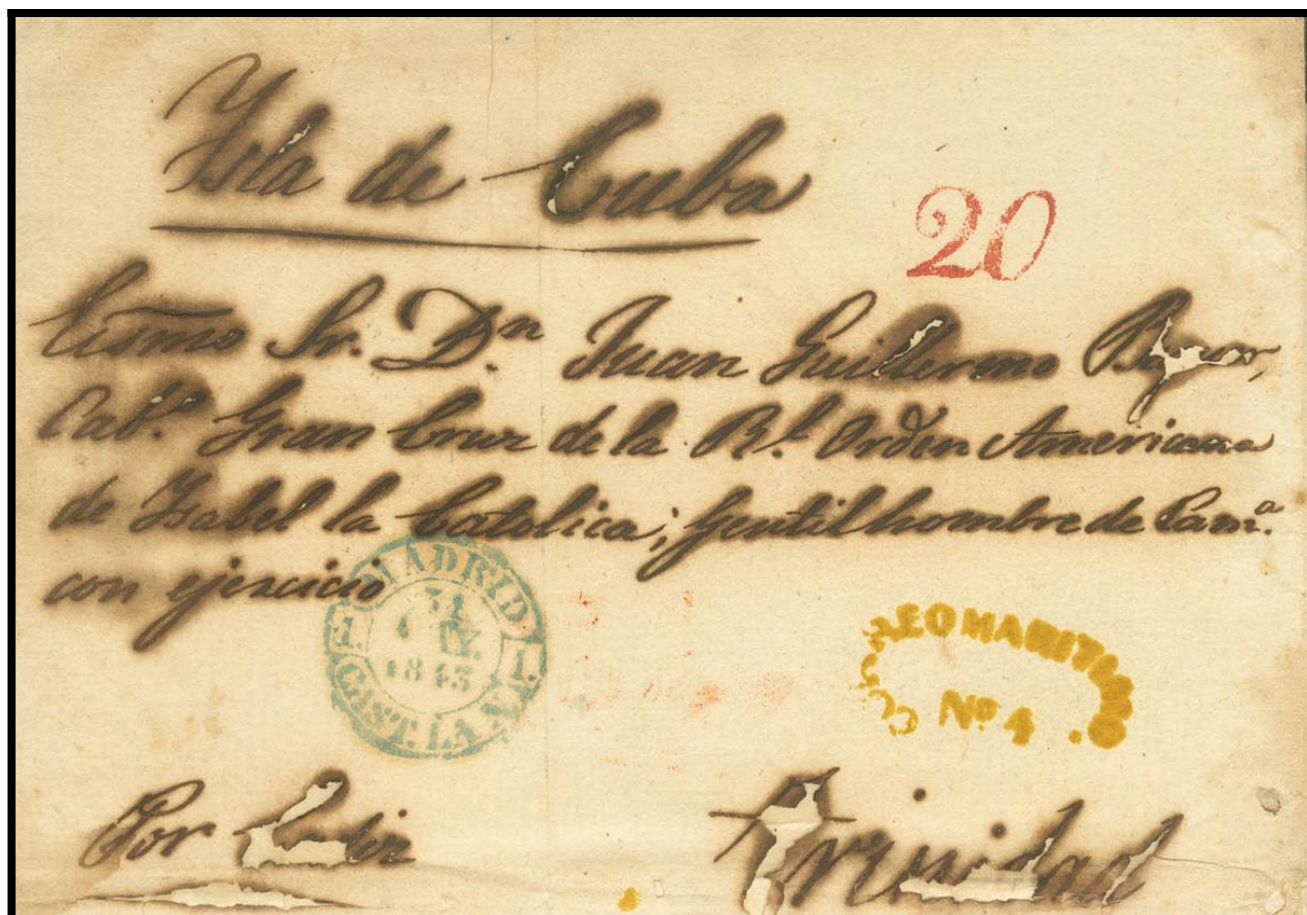 Ysla de Cuba
20
Exmo Sr. Dn Juan Guillermo
Cab.o Gran Cruz de la Rl. Orden Americana
de Ysabel la Catolica; Gentil hombre de Cam.a
con ejercicio
MADRID
1. 1.
1843
CAST. LA N.
CORREO MARITIMO
Nº 4
Por Cadiz
Trinidad